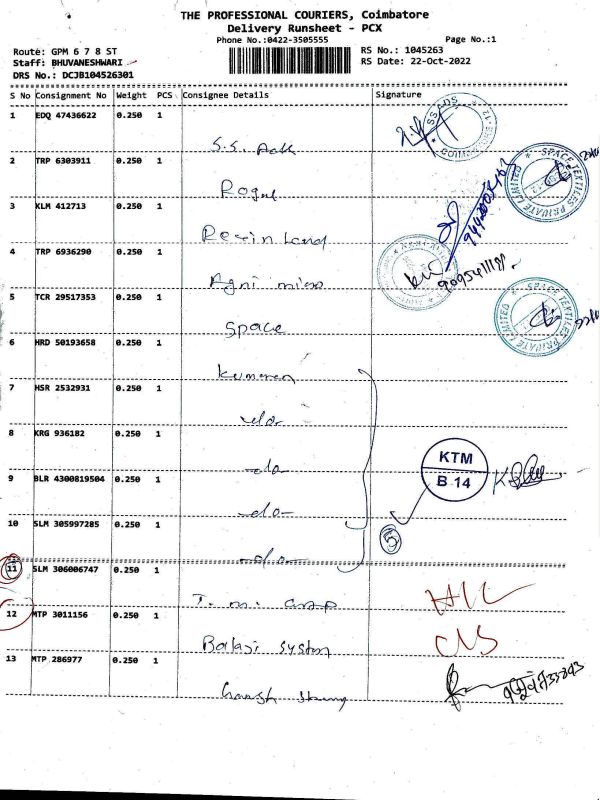 THE PROFESSIONAL COURIERS, Coimbatore
Delivery Runsheet - PCX
Phone No.:0422-3505555
Page No.:1
Route: GPM 6 7 8 ST
RS No.: 1045263
Staff: BHUVANESHWARI
RS Date: 22-Oct-2022
DRS No.: DCJB104526301
S No Consignment No Weight PCS Consignee Details Signature
1 EDQ 47436622 0.250 1
S.S. Ack
2 TRP 6303911 0.250 1
SPACE TEXTILES PRIVATE LIMITED
3 KLM 412713 0.250 1
4 TRP 6936290 0.250 1
Agni
5 TCR 29517353 0.250 1
Space
SPACE TEXTILES PRIVATE LIMITED
6 HRD 50193658 0.250 1
Kumaran
7 HSR 2532931 0.250 1
-do-
8 KRG 936182 0.250 1
-do-
KTM
B 14
9 BLR 4300819504 0.250 1
-do-
10 SLM 305997285 0.250 1
5
-do-
11 SLM 306006747 0.250 1
12 MTP 3011156 0.250 1
Balaji System
13 MTP 286977 0.250 1